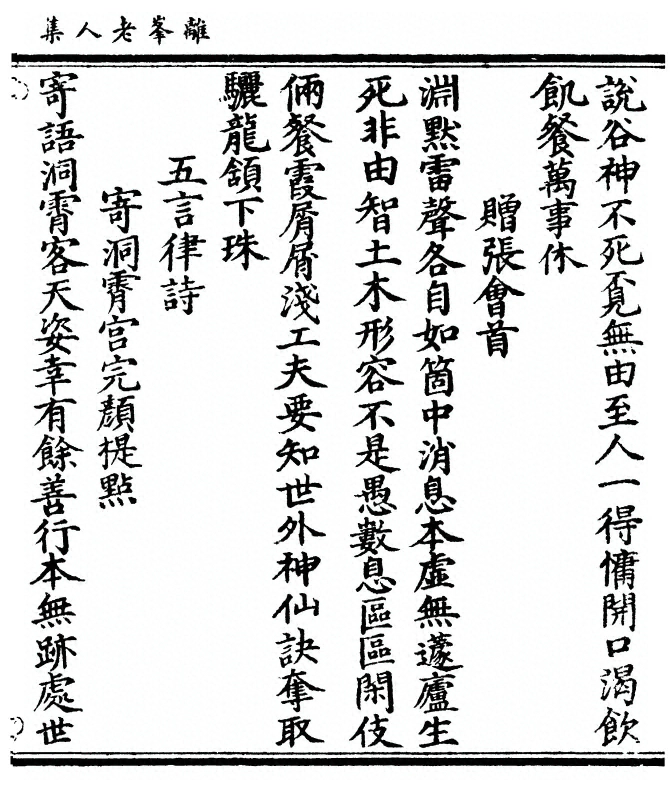 離峯老人集
說谷神不死覔無由至人一得慵開口渴飲
飢餐萬事休
贈張會首
淵默雷聲各自如箇中消息本虛無蘧廬生
死非由智土木形容不是愚數息區區閑伎
倆餐霞屑屑淺工夫要知世外神仙訣奪取
驪龍頷下珠
五言律詩
寄洞霄宮完顏提點
寄語洞霄客天姿幸有餘善行本無跡處世